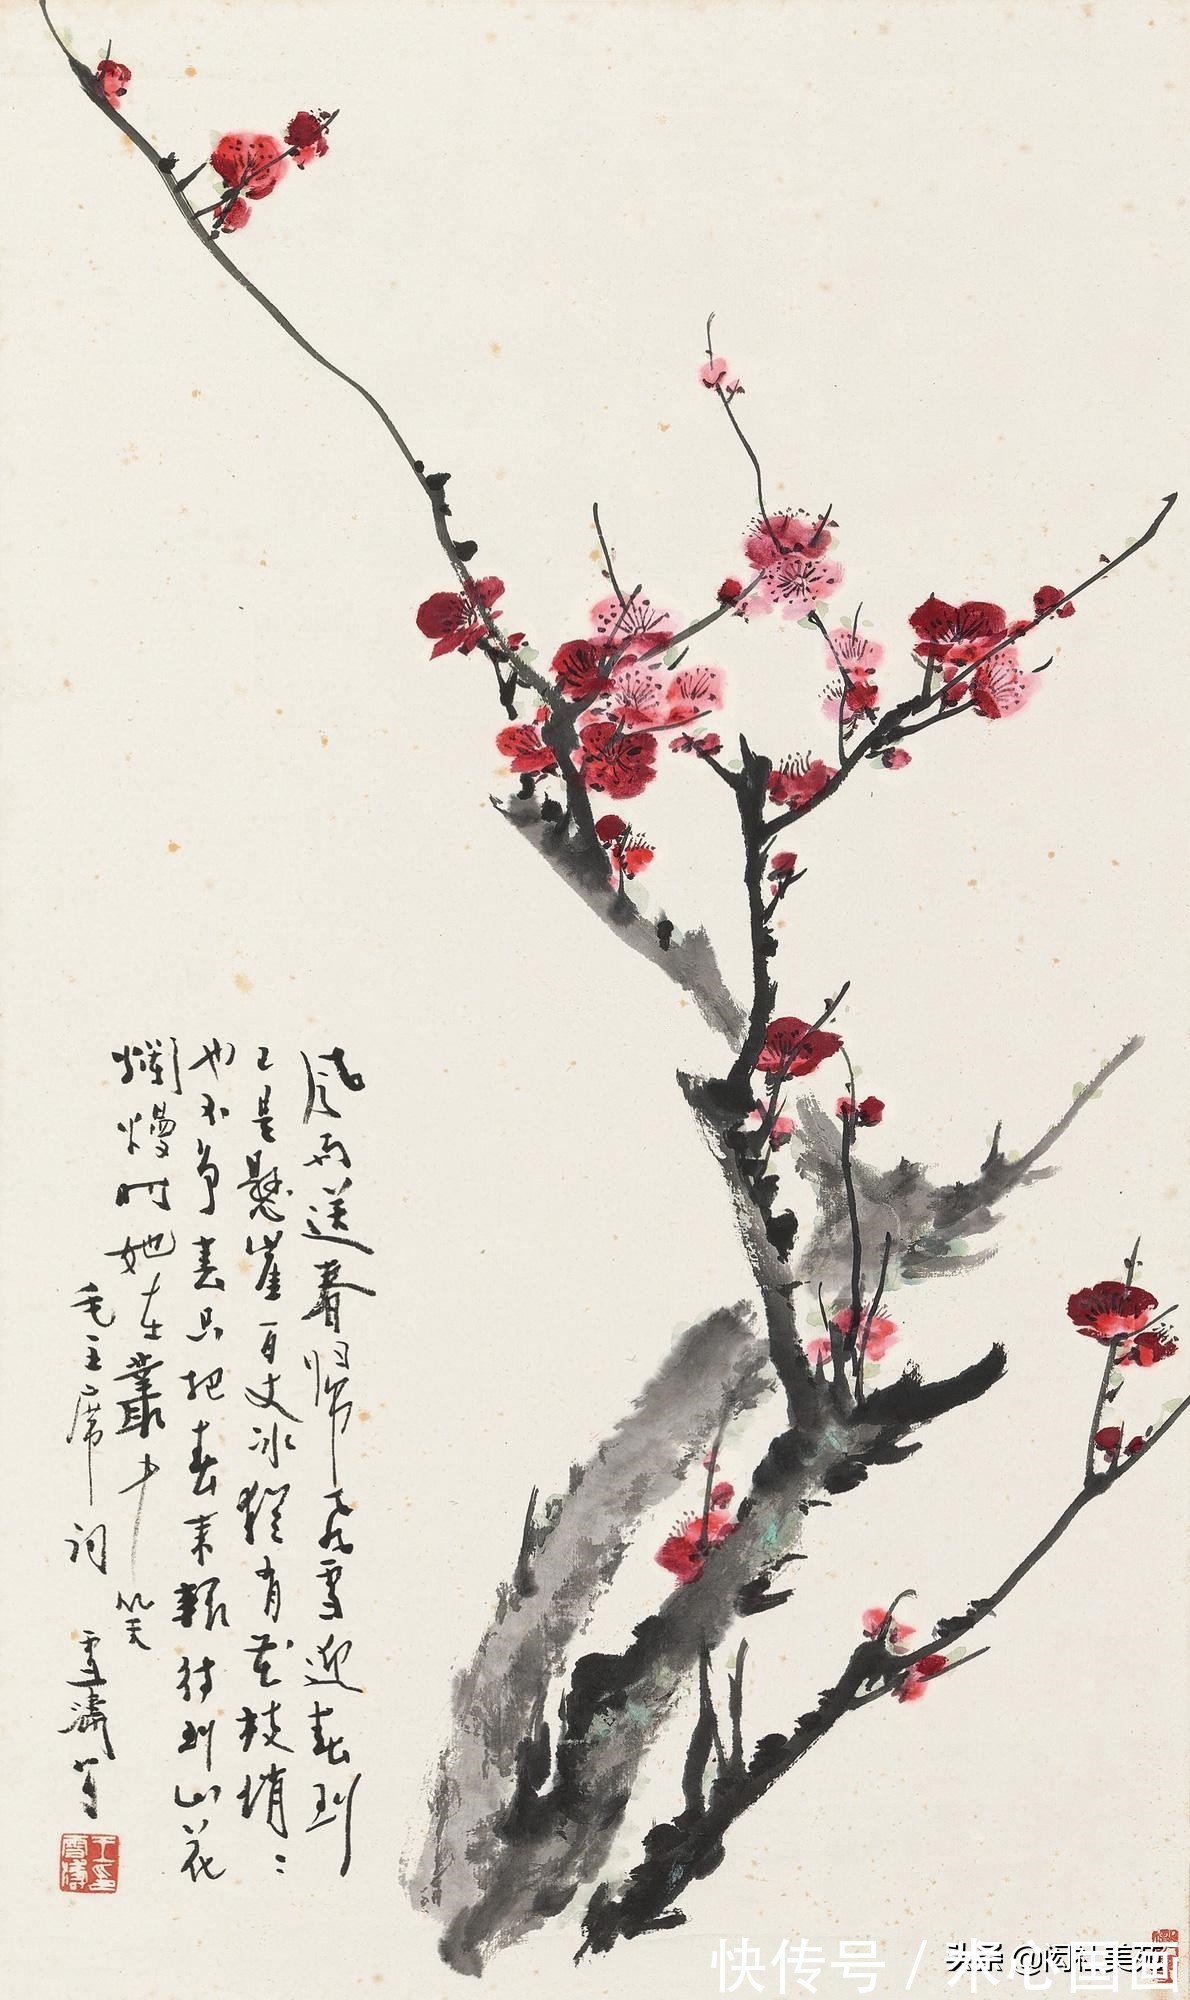 风雨送春归飞雪迎春到
已是悬崖百丈冰犹有花枝悄〻
也不争春只把春来报待到山花
烂熳时她在丛中笑
毛主席词 雪涛写
王印
雪涛
快传号 /
头条 @闳社美苑